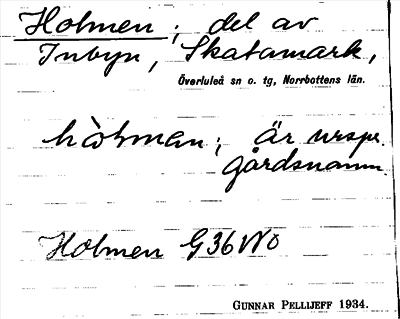 Holmen; del av
Inbyn, Skatamark,
Överluleå sn o. tg, Norrbottens län.
hòlman; är urspr.
gårdsnamn.
Holmen G36 NO
GUNNAR PELLIJEFF 1934.